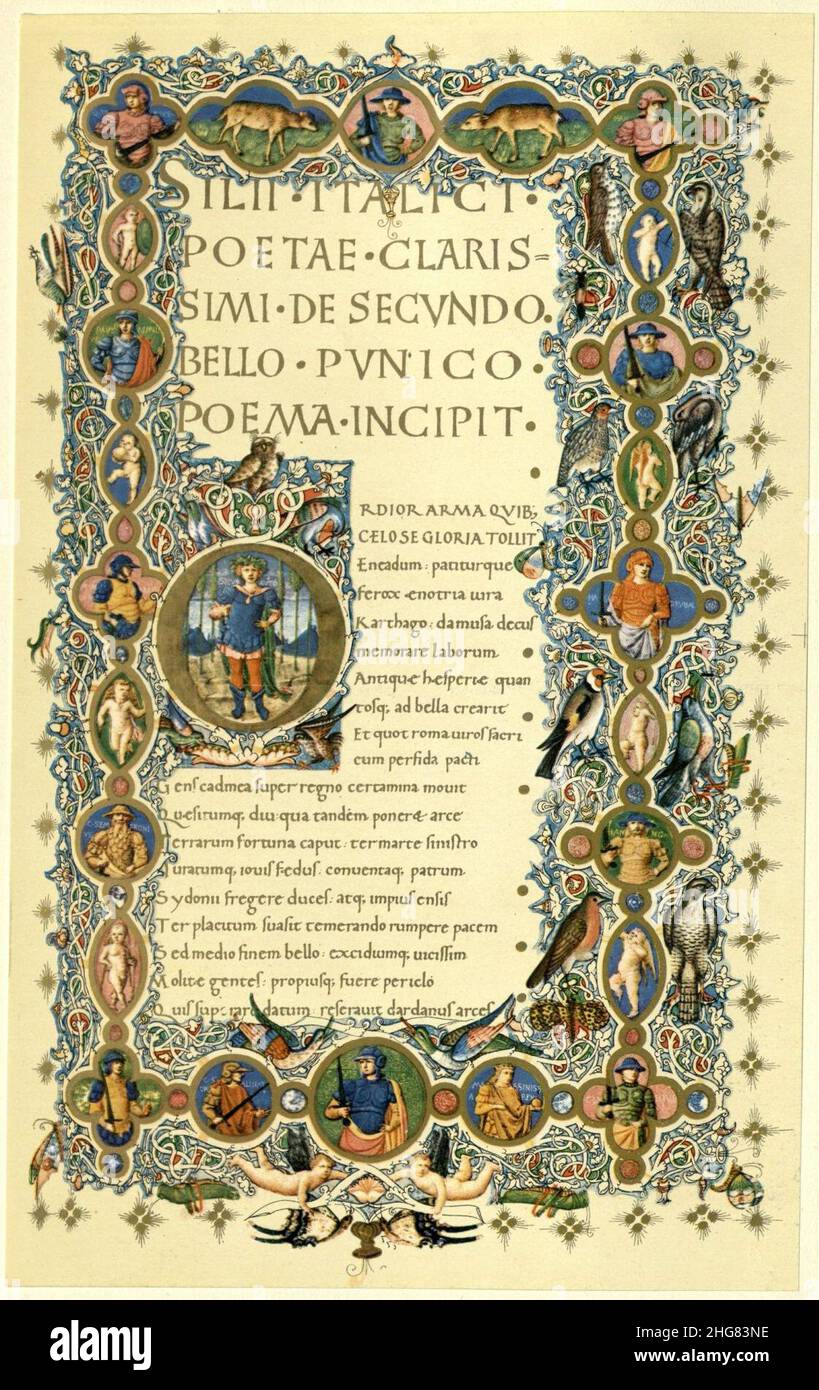 SILII · ITALICI ·
POETAE · CLARIS=
SIMI · DE SECVNDO.
BELLO · PVNICO ·
POEMA · INCIPIT ·
ORDIOR ARMA QVIB;
CELO SE GLORIA TOLLIT
Eneadum : patiturque
ferox œnotria iura
Karthago : da musa decus
memorare laborum
Antiquæ hesperiæ quan
tosq; ad bella crearit
Et quot roma uiros sacri
cum perfida pacti
Gens cadmea super regno certamina mouit
Quesitumq; diu qua tandem poneret arce
Terrarum fortuna caput : ter marte sinistro
Iuratumq; iouis fedus : conuentaq; patrum
Sydonii fregere duces : atq; impius ensis
Ter placitum suasit temerando rumpere pacem
Sed medio finem bello : excidiumq; uicissim
Molite gentes : propiusq; fuere periclo
Quis superare datum : reserauit dardanus arces
alamy
Image ID: 2HG83NE
www.alamy.com